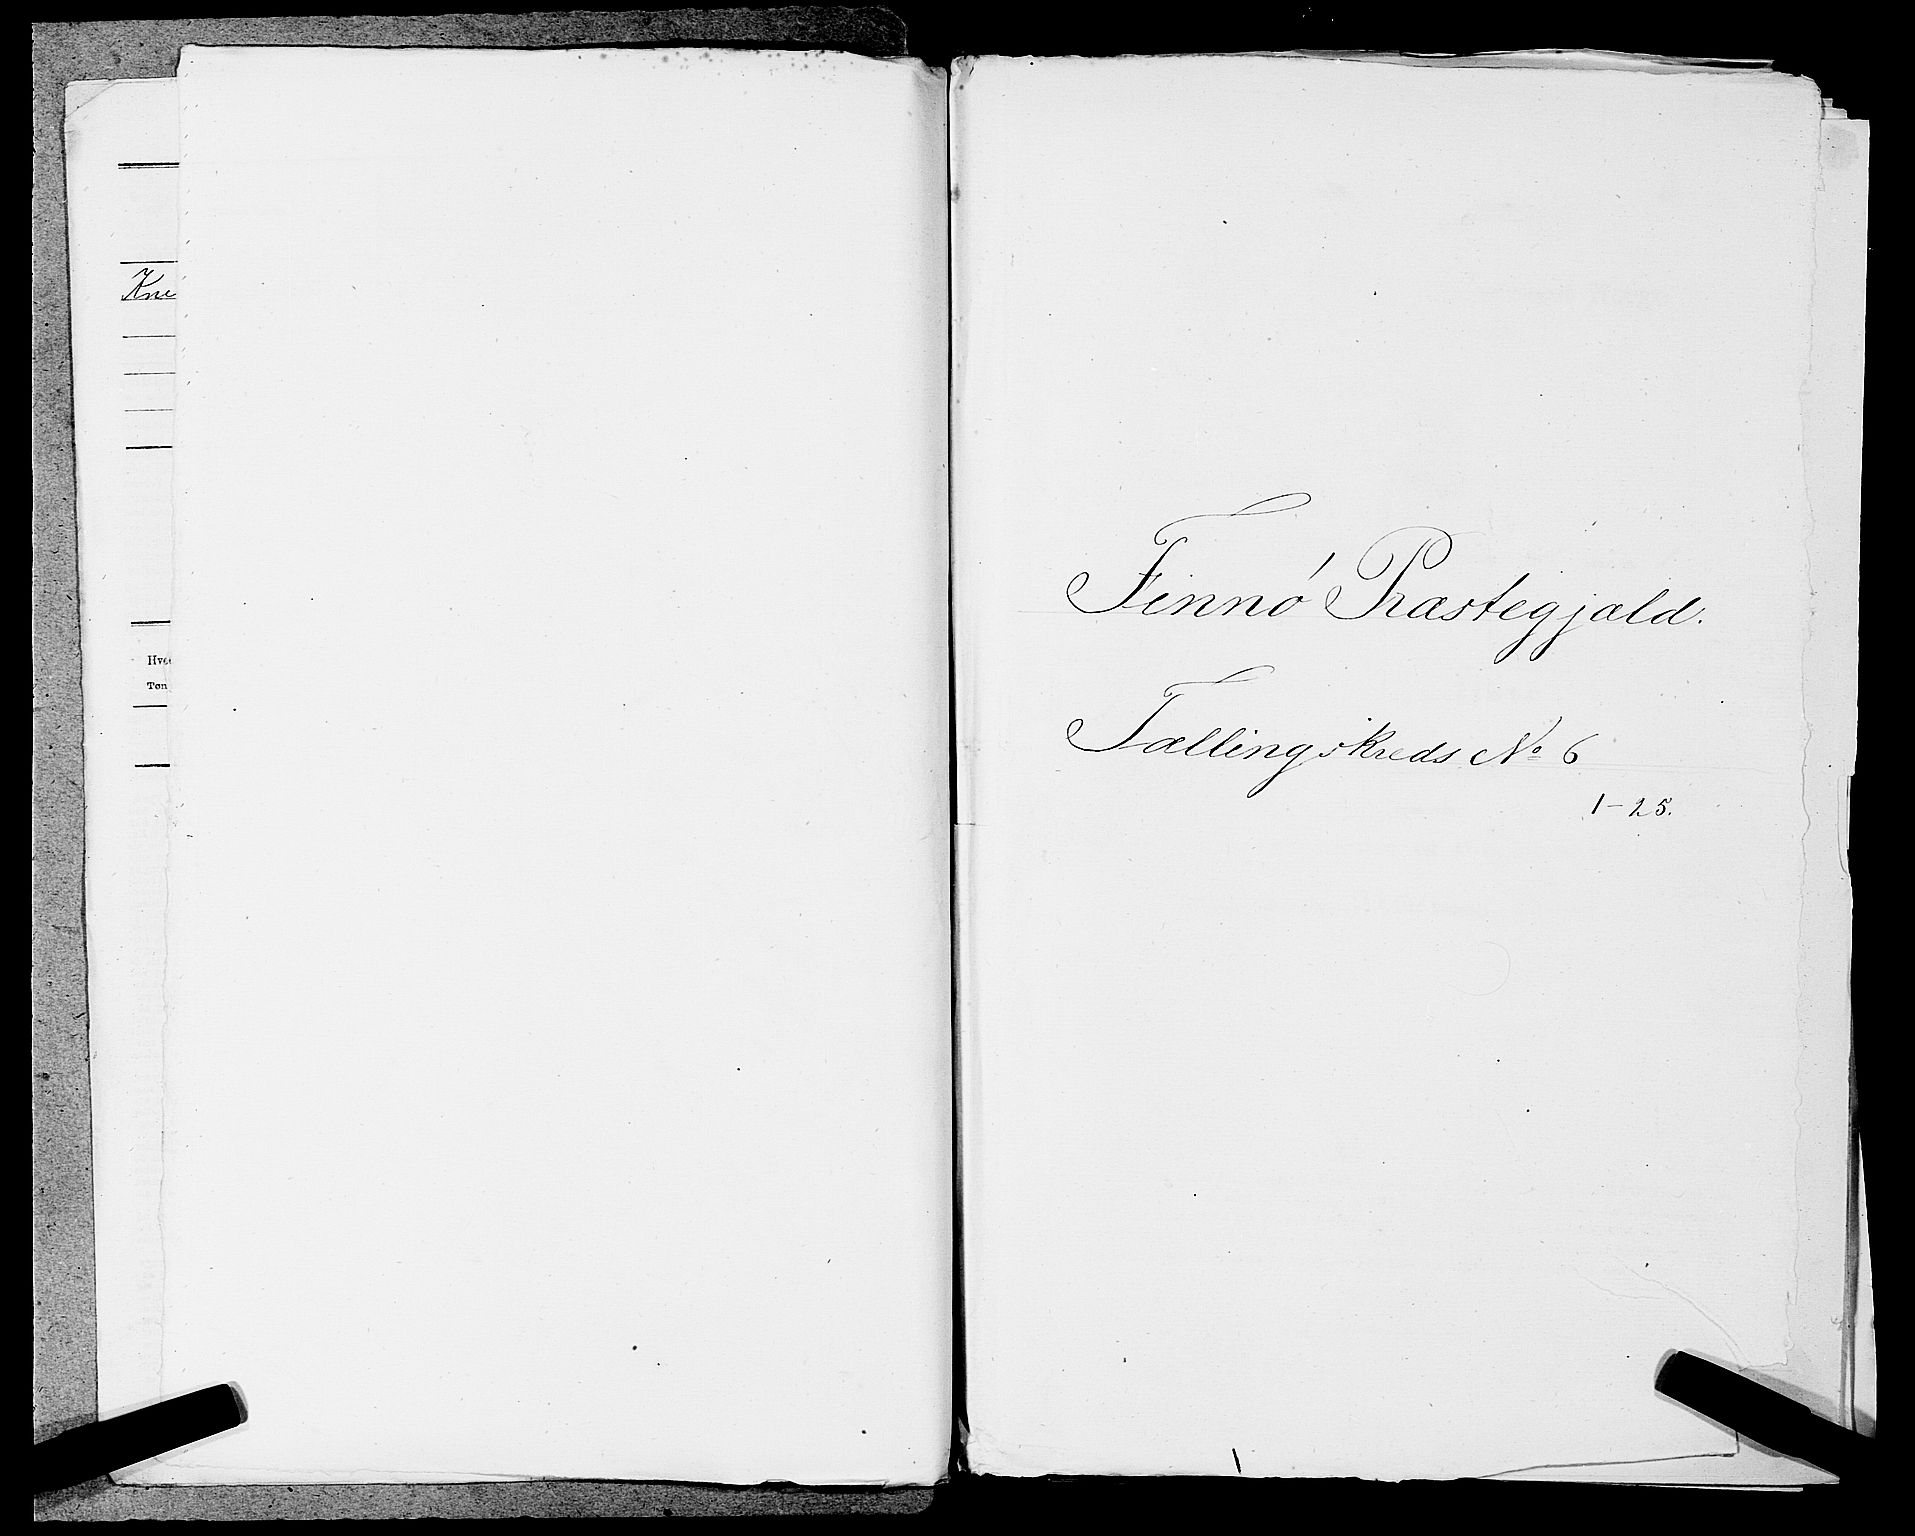 Kne
Hve
Tøn
Finnö Præstegjæld.
Tællingskreds No 6
1-25.